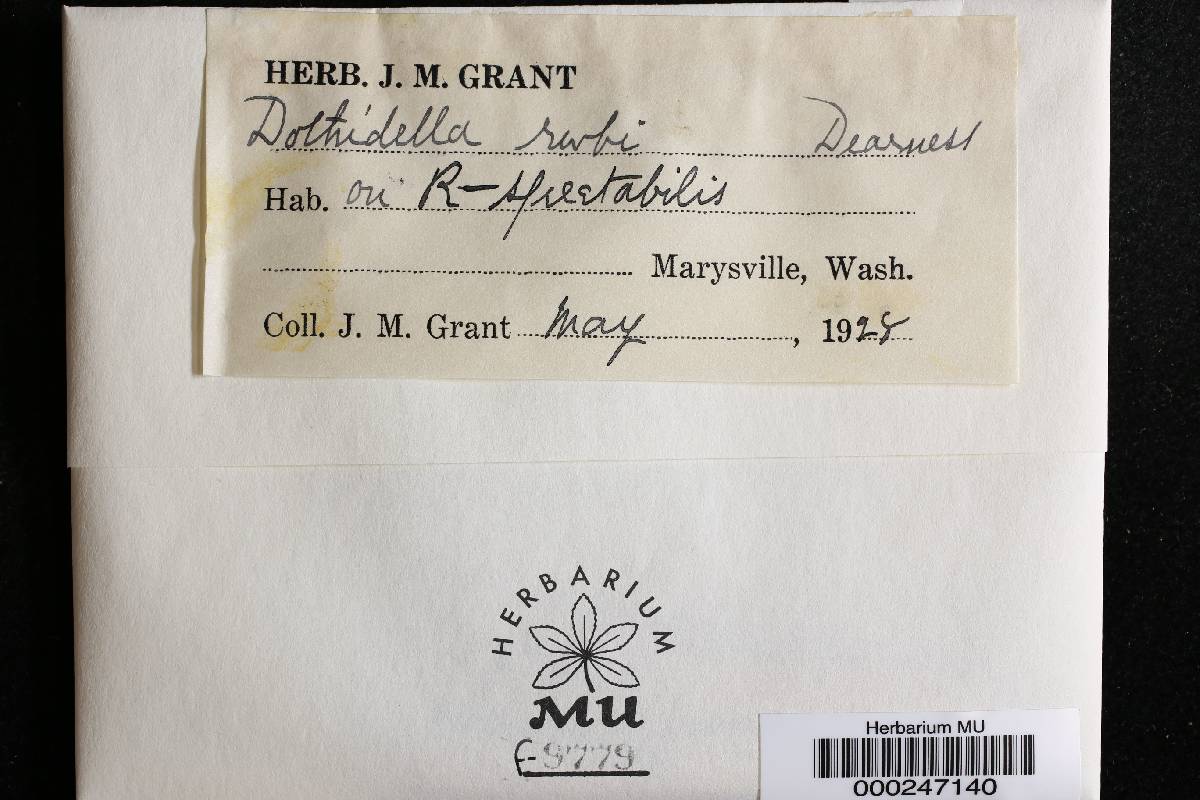 HERB. J. M. GRANT
Dothidella rubi Dearness
Hab. on R-spectabilis
Marysville, Wash.
Coll. J. M. Grant May, 1928
HERBARIUM
MU
F-9779
Herbarium MU
000247140